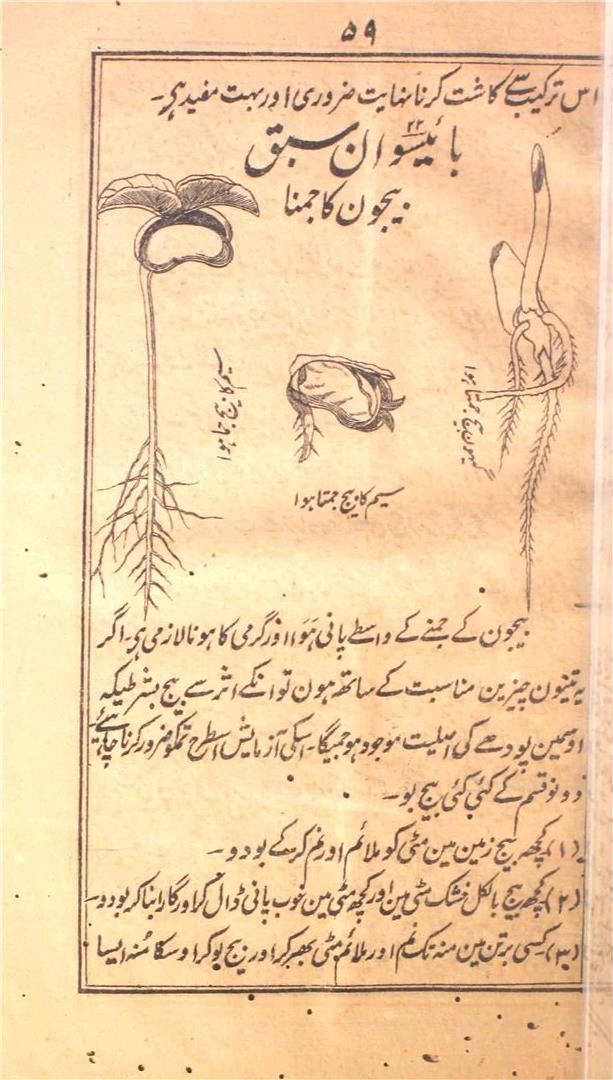 ۵۹
اس ترکیب سے کاشت کرنا نہایت ضروری اور بہت مفید ہی۔
۲۲
بائیسوان سبق
بیجون کا جمنا
گیہون بیج جمتا ہوا
سیم کا بیج جمتا ہوا
سیم کا بیج جما ہوا
بیجون کے جمنے کے واسطے پانی ہَوا اور گرمی کا ہونا لازمی ہی۔ اگر
یہ تینون چیزین مناسبت کے ساتھ ہون تو انکے اثر سے بیج بشرطیکہ
اوسمین پودھے کی اصلیت موجود ہو جمیگا۔ اسکی آزمایش اسطرح تمکو ضرور کرنا چاہئے
دونو قسم کے کئی کئی بیج بو۔
(۱) کچھ بیج زمین مین مٹی کو ملائم اور نم کرکے بودو۔
(۲) کچھ بیج بالکل خشک مٹی مین اور کچھ مٹی مین خوب پانی ڈال کر اور گارا بنا کر بودو۔
(۳) کسی برتن مین منہ تک نم اور ملائم مٹی بھر کر اور بیج بو کر اوسکا مُنہ ایسا